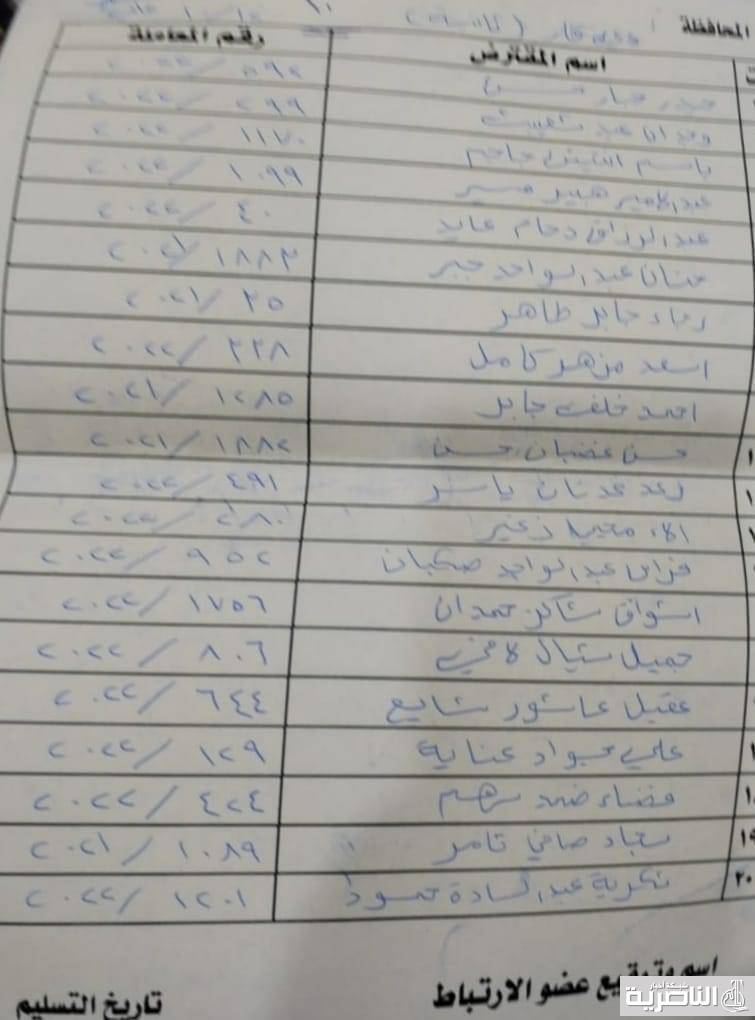 المحافظة ذي قار (الناصرية)
ت اسم المقترض رقم المعاملة
حيدر جبار حسن ٥٩٢ / ٢٠٢٢
وجدان عبد ٢٩٩ / ٢٠٢٢
باسم جاجم ١١٧٠ / ٢٠٢٢
عبد الامير هبير ١٠٩٩ / ٢٠٢٢
عبد الرزاق دحام عايد ٤٠ / ٢٠٢٢
حنان عبد الواحد جبر ١٨٨٣ / ٢٠٢١
رجاء جابر طاهر ٣٥ / ٢٠٢١
اسعد مزهر كامل ٢٢٨ / ٢٠٢٢
احمد خلف جابر ١٢٨٥ / ٢٠٢١
حسن غضبان حسن ١٨٨٢ / ٢٠٢١
رعد عدنان ياسر ٤٩١ / ٢٠٢٢
الاء مجيد زغير ٢٨٠ / ٢٠٢٢
فراس عبد الواحد ضكبان ٩٥٢ / ٢٠٢٢
اشواق شاكر حمدان ١٧٥٦ / ٢٠٢٢
جميل ستيال لافي ٨٠٦ / ٢٠٢٢
عقيل عاشور شايع ٦٤٤ / ٢٠٢٢
علي جواد عناية ١٢٩ / ٢٠٢٢
فضاء ضمد سهم ٤٢٤ / ٢٠٢٢
١٩ سجاد صافي ثامر ١٠٨٩ / ٢٠٢١
٢٠ عبد السادة حمود ١٢٠١ / ٢٠٢٢
اسم وتوقيع عضو الارتباط تاريخ التسليم
شبكة أخبار
الناصرية